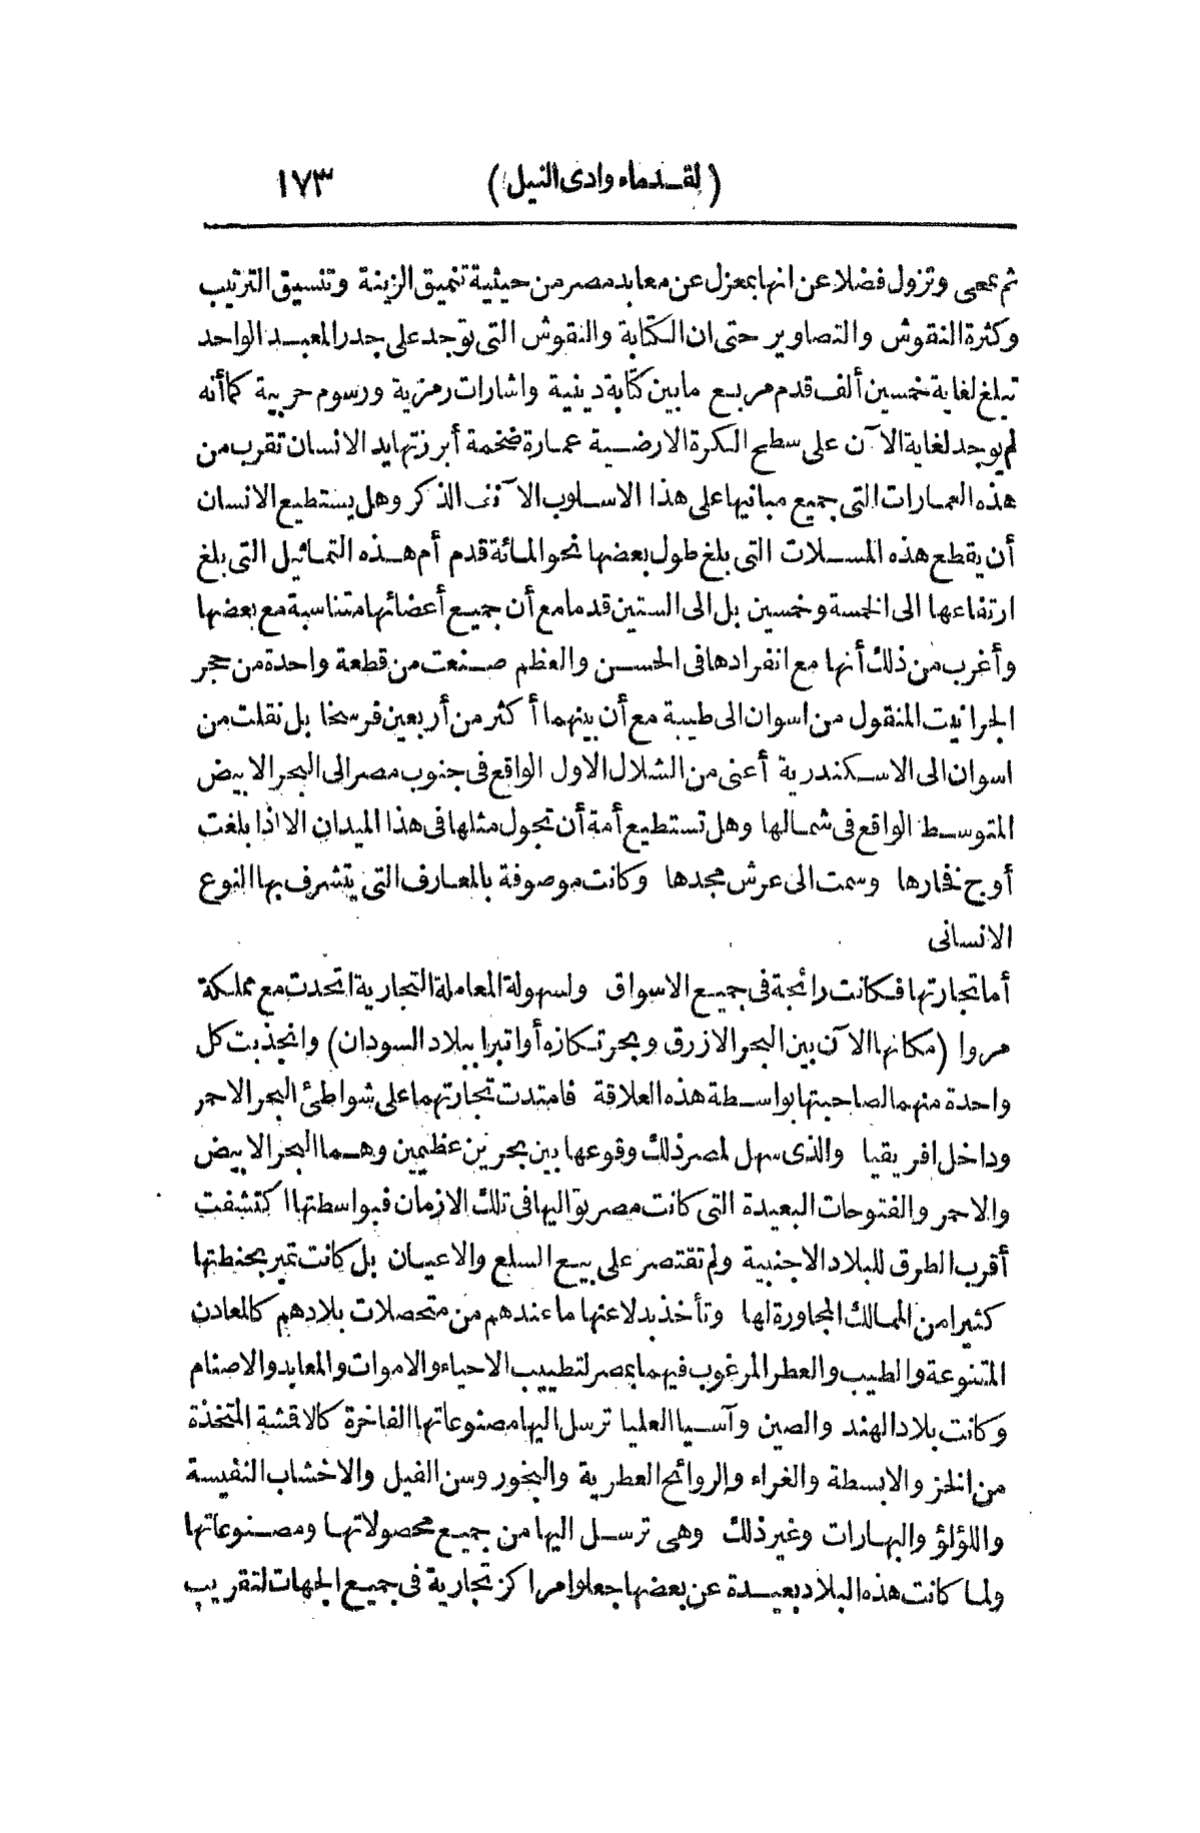 (لقدماء وادى النيل) ١٧٣
ثم تمحى وتزول فضلا عن انها بمعزل عن معابد مصر من حيثية تنميق الزينة وتنسيق الترتيب
وكثرة النقوش والتصاوير حتى ان الكتابة والنقوش التى توجد على جدر المعبد الواحد
تبلغ لغاية خمسين ألف قدم مربع مابين كتابة دينية واشارات رمزية ورسوم حربية كما أنه
لم يوجد لغاية الآن على سطح الكرة الارضية عمارة ضخمة أبرزتها يد الانسان تقرب من
هذه العمارات التى جميع مبانيها على هذا الاسلوب الآنف الذكر وهل يستطيع الانسان
أن يقطع هذه المسلات التى بلغ طول بعضها نحو المائة قدم أم هذه التماثيل التى بلغ
ارتفاعها الى الخمسة وخمسين بل الى الستين قدما مع أن جميع أعضائها متناسبة مع بعضها
وأغرب من ذلك أنها مع انفرادها فى الحسن والعظم صنعت من قطعة واحدة من حجر
الجرانيت المنقول من اسوان الى طيبة مع أن بينهما أكثر من أربعين فرسخا بل نقلت من
اسوان الى الاسكندرية أعنى من الشلال الاول الواقع فى جنوب مصر الى البحر الابيض
المتوسط الواقع فى شمالها وهل تستطيع أمة أن تجول مثلها فى هذا الميدان الا اذا بلغت
أوج فخارها وسمت الى عرش مجدها وكانت موصوفة بالمعارف التى يتشرف بها النوع
الانسانى
أما تجارتها فكانت رائجة فى جميع الاسواق ولسهولة المعاملة التجارية اتحدت مع مملكة
مروا (مكانها الآن بين البحر الازرق وبحر تكازه أو اتبرا ببلاد السودان) وانجذبت كل
واحدة منهما لصاحبتها بواسطة هذه العلاقة فامتدت تجارتهما على شواطئ البحر الاحمر
وداخل افريقيا والذى سهل لمصر ذلك وقوعها بين بحرين عظيمين وهما البحر الابيض
والاحمر والفتوحات البعيدة التى كانت مصر تواليها فى تلك الازمان فبواسطتها اكتشفت
أقرب الطرق للبلاد الاجنبية ولم تقتصر على بيع السلع والاعيان بل كانت تمير بحنطتها
كثيرا من الممالك المجاورة لها وتأخذ بدلا عنها ما عندهم من متحصلات بلادهم كالمعادن
المتنوعة والطيب والعطر المرغوب فيهما بمصر لتطييب الاحياء والاموات والمعابد والاصنام
وكانت بلاد الهند والصين وآسيا العليا ترسل اليها مصنوعاتها الفاخرة كالاقشة المتخذة
من الخز والابسطة والغراء والروائح العطرية والبخور وسن الفيل والاخشاب النفيسة
واللؤلؤ والبهارات وغير ذلك وهى ترسل اليها من جميع محصولاتها ومصنوعاتها
ولما كانت هذه البلاد بعيدة عن بعضها جعلوا مراكز تجارية فى جميع الجهات لتقريب